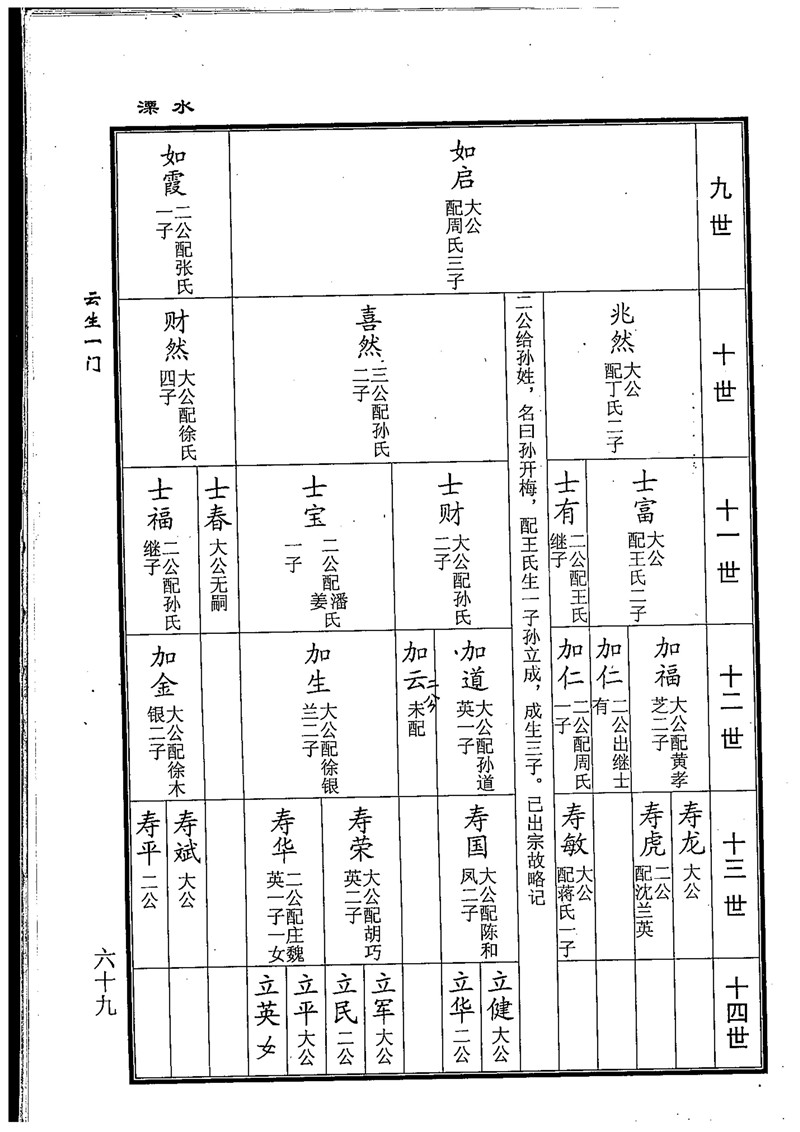 溧水
九世
如启
大公
配周氏三子
如霞
二公配张氏
一子
十世
兆然
大公
配丁氏二子
二公给孙姓，名曰孙开梅，配王氏生一子孙立成，成生三子。已出宗故略记
喜然
三公配孙氏
二子
财然
大公配徐氏
四子
十一世
士富
大公
配王氏二子
士有
二公配王氏
继子
士财
大公配孙氏
二子
士宝
二公配潘姜氏
一子
士春
大公无嗣
士福
二公配孙氏
继子
十二世
加福
大公配黄孝
芝二子
加仁
二公出继士
有
加仁
二公配周氏
一子
加道
大公配孙道
英一子
加云
二公
未配
加生
大公配徐银
兰二子
加金
大公配徐木
银二子
十三世
寿龙
大公
寿虎
二公
配沈兰英
寿敏
大公
配蒋氏一子
寿国
大公配陈和
凤二子
寿荣
大公配胡巧
英二子
寿华
二公配庄魏
英一子一女
寿斌
大公
寿平
二公
十四世
立健
大公
立华
二公
立军
大公
立民
二公
立平
大公
立英
女
云生一门
六十九